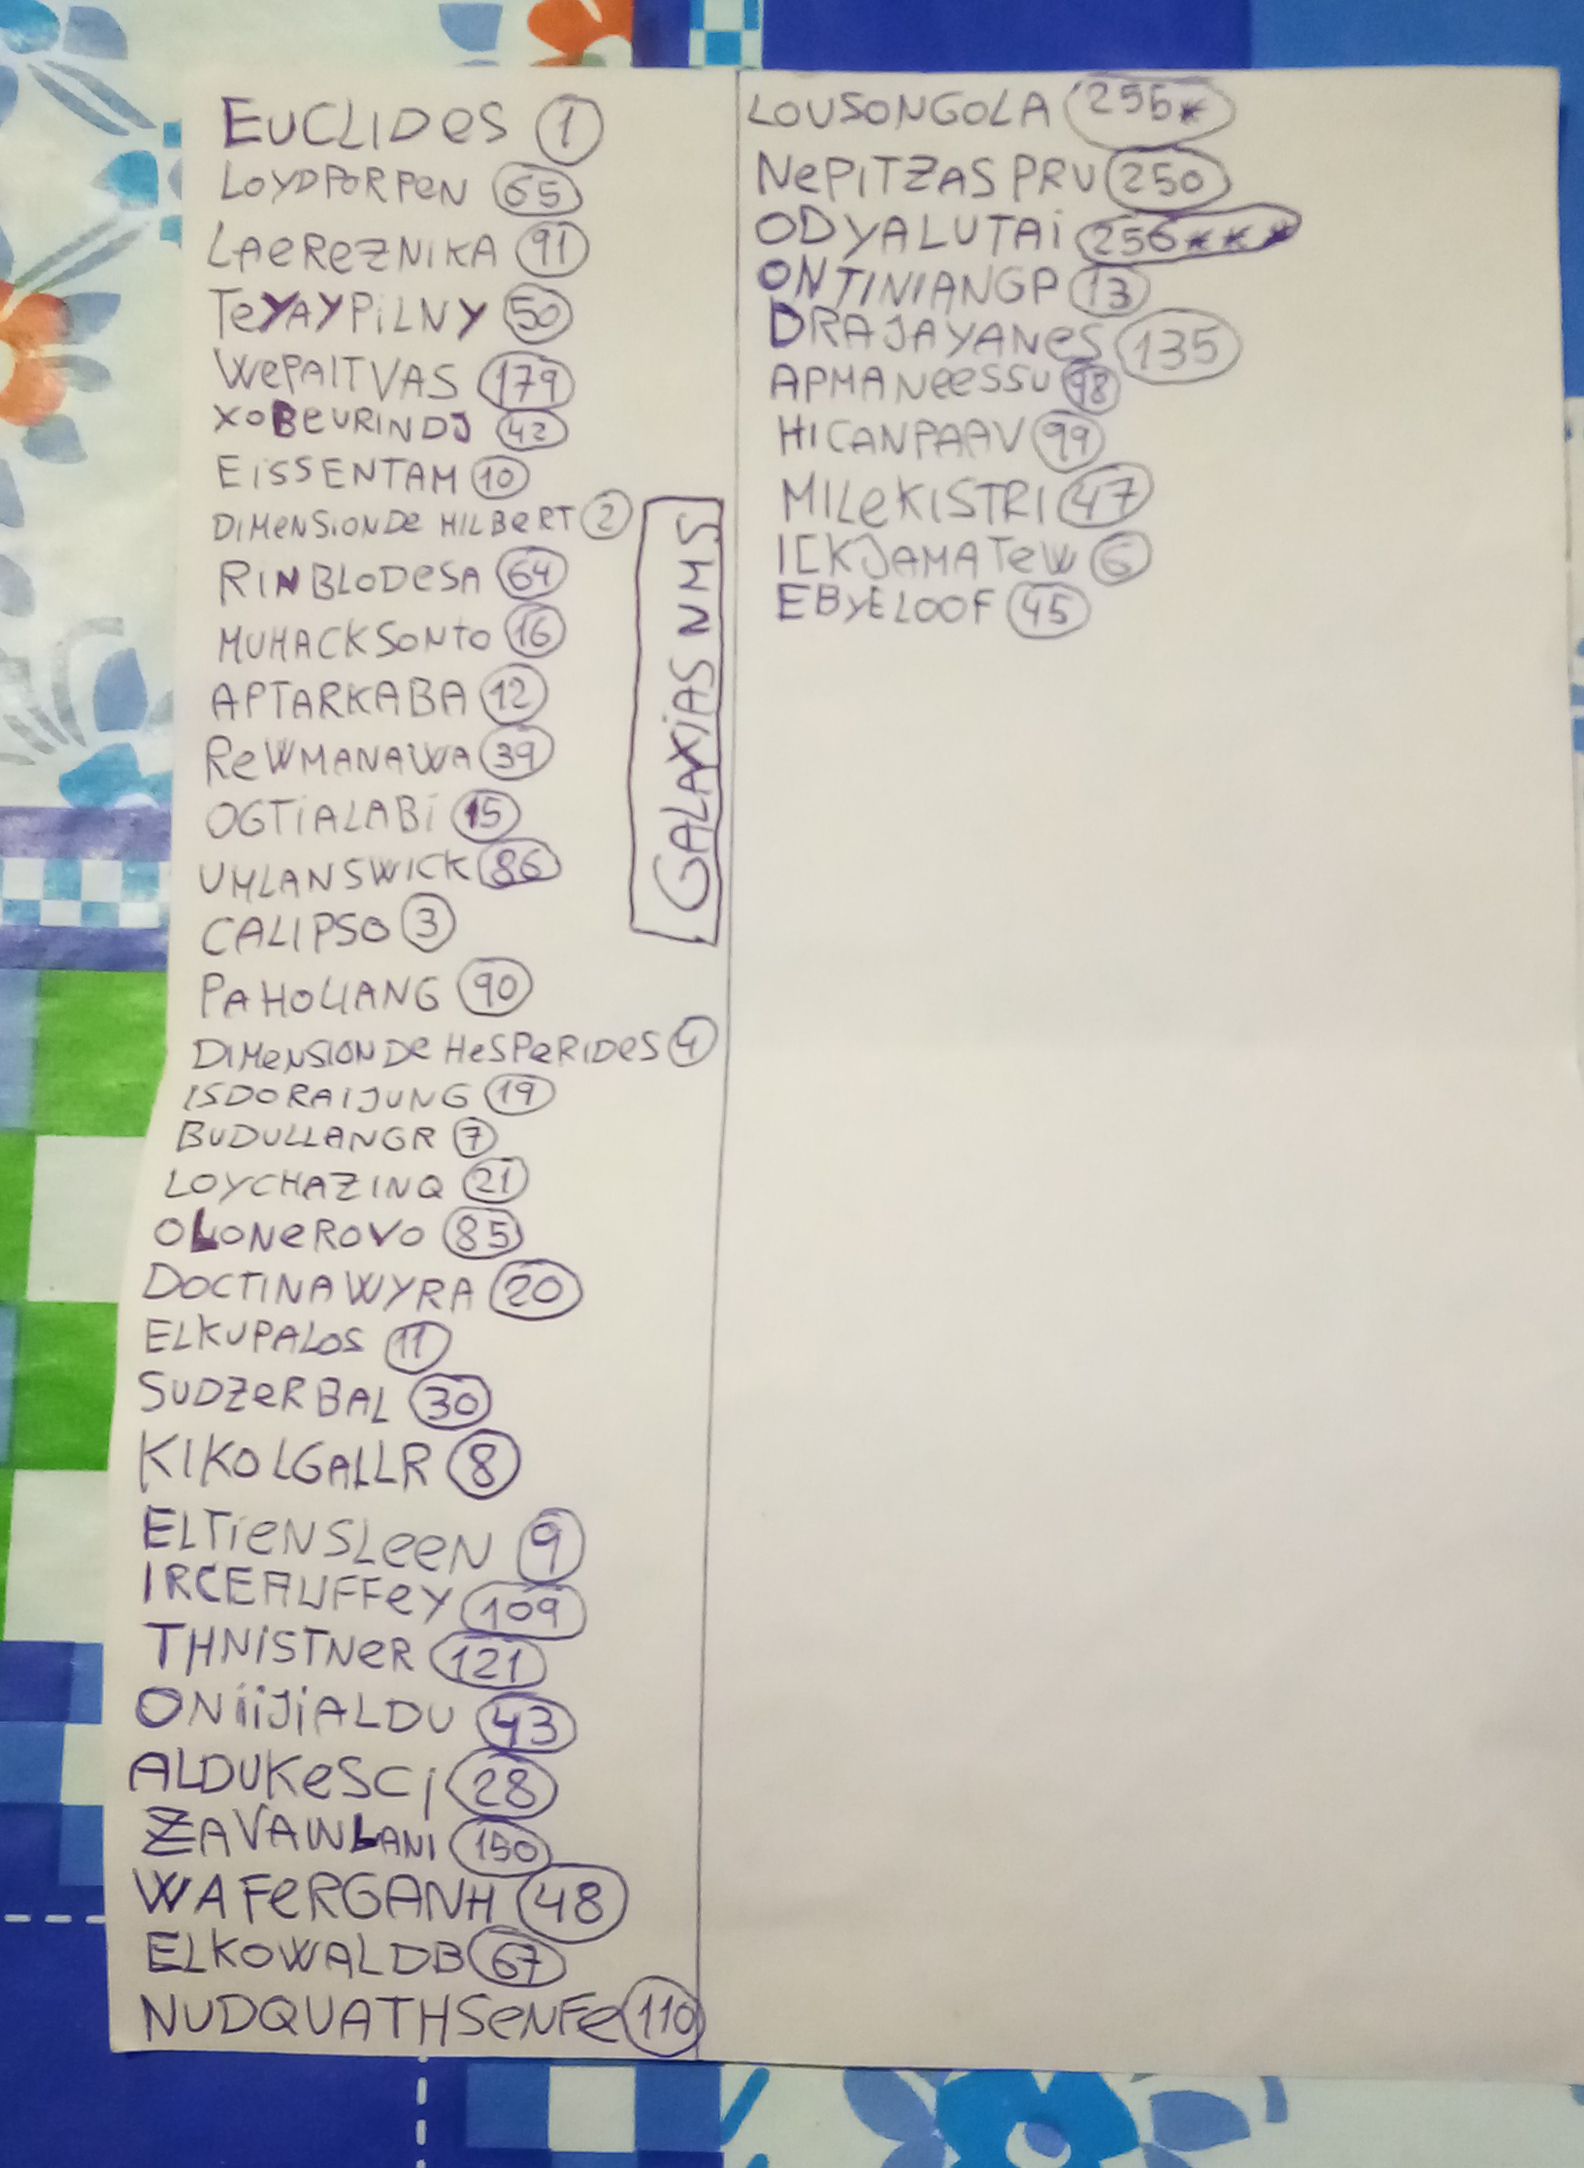 EUCLIDES 1
LOYDPORPEN 65
LAEREZNIKA 91
TEYAYPILNY 50
WEPAITVAS 179
XOBEURINDJ 42
EISSENTAM 10
DIMENSION DE HILBERT 2
RINBLODESA 64
MUHACKSONTO 16
APTARKABA 12
REWMANAWA 39
OGTIALABI 15
UMLANSWICK 86
CALIPSO 3
PAHOLIANG 90
DIMENSION DE HESPERIDES 4
ISDORAIJUNG 19
BUDULLANGR 7
LOYCHAZINQ 21
OLONEROVO 85
DOCTINAWYRA 20
ELKUPALOS 11
SUDZERBAL 30
KIKOLGALLR 8
ELTIENSLEEN 9
IRCEAUFFEY 109
THNISTNER 121
ONIIJIALDU 43
ALDUKESCI 28
ZAVAINLANI 150
WAFERGANH 48
ELKOWALDB 67
NUDQUATHSENFE 110
GALAXIAS NMS
LOUSONGOLA 256*
NEPITZASPRU 250
ODYALUTAI 256***
ONTINIANGP 13
DRAJAYANES 135
APMANEESSU 98
HICANPAAV 99
MILEKISTRI 47
ICKJAMATEW 6
EBYELOOF 45